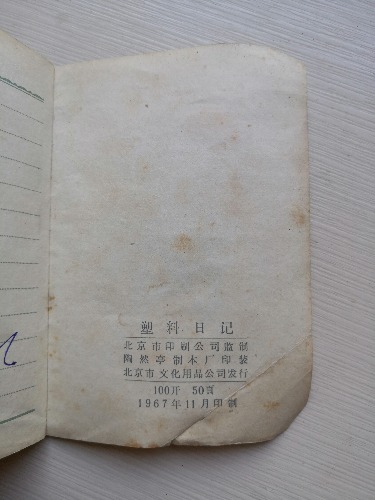 塑料日记
北京市印刷公司监制
陶然亭制本厂印装
北京市文化用品公司发行
100开 50页
1967年11月印制